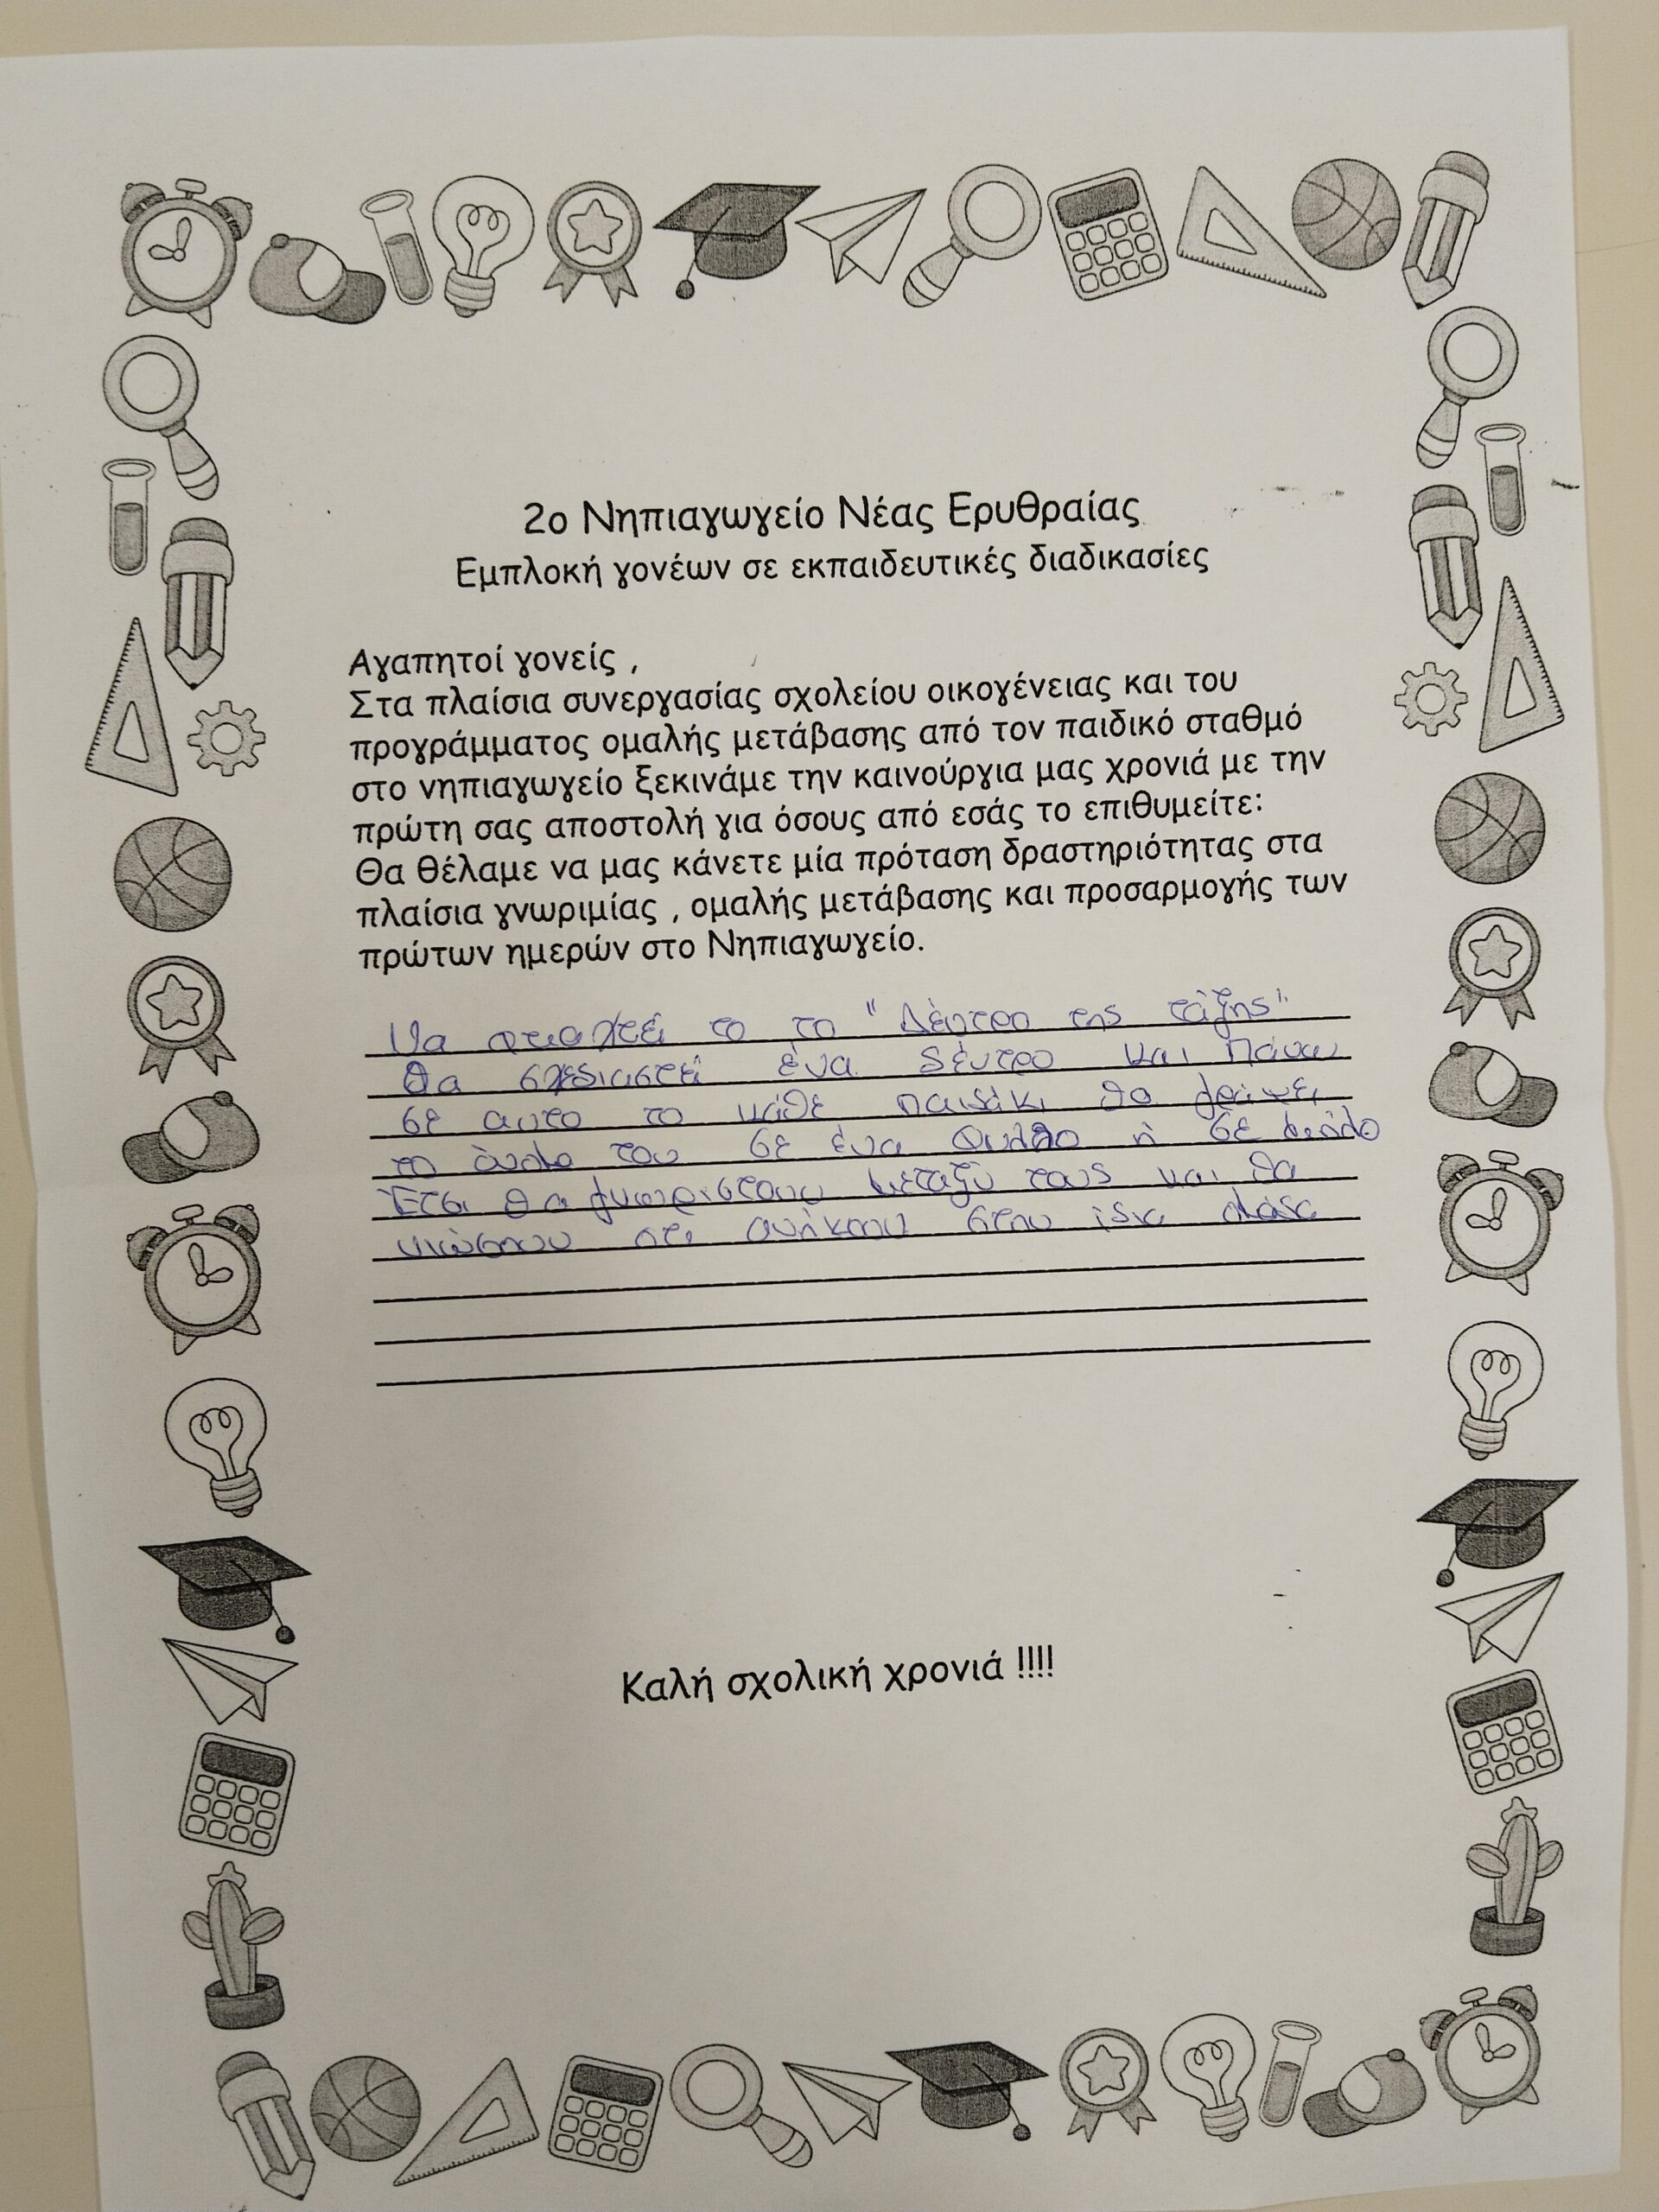 2ο Νηπιαγωγείο Νέας Ερυθραίας
Εμπλοκή γονέων σε εκπαιδευτικές διαδικασίες
Αγαπητοί γονείς ,
Στα πλαίσια συνεργασίας σχολείου οικογένειας και του
προγράμματος ομαλής μετάβασης από τον παιδικό σταθμό
στο νηπιαγωγείο ξεκινάμε την καινούργια μας χρονιά με την
πρώτη σας αποστολή για όσους από εσάς το επιθυμείτε:
Θα θέλαμε να μας κάνετε μία πρόταση δραστηριότητας στα
πλαίσια γνωριμίας , ομαλής μετάβασης και προσαρμογής των
πρώτων ημερών στο Νηπιαγωγείο.
Να φτιαχτεί το το "Δέντρο της τάξης"
Θα σχεδιαστεί ένα δέντρο και πάνω
σε αυτο το κάθε παιδάκι θα γράψει
το όνομα του σε ένα φυλλο ή σε μήλο
Έτσι θα γνωριστουν μεταξύ τους και θα
νιώσουν οτι ανήκουν στην ίδια ομάδα
Καλή σχολική χρονιά !!!!